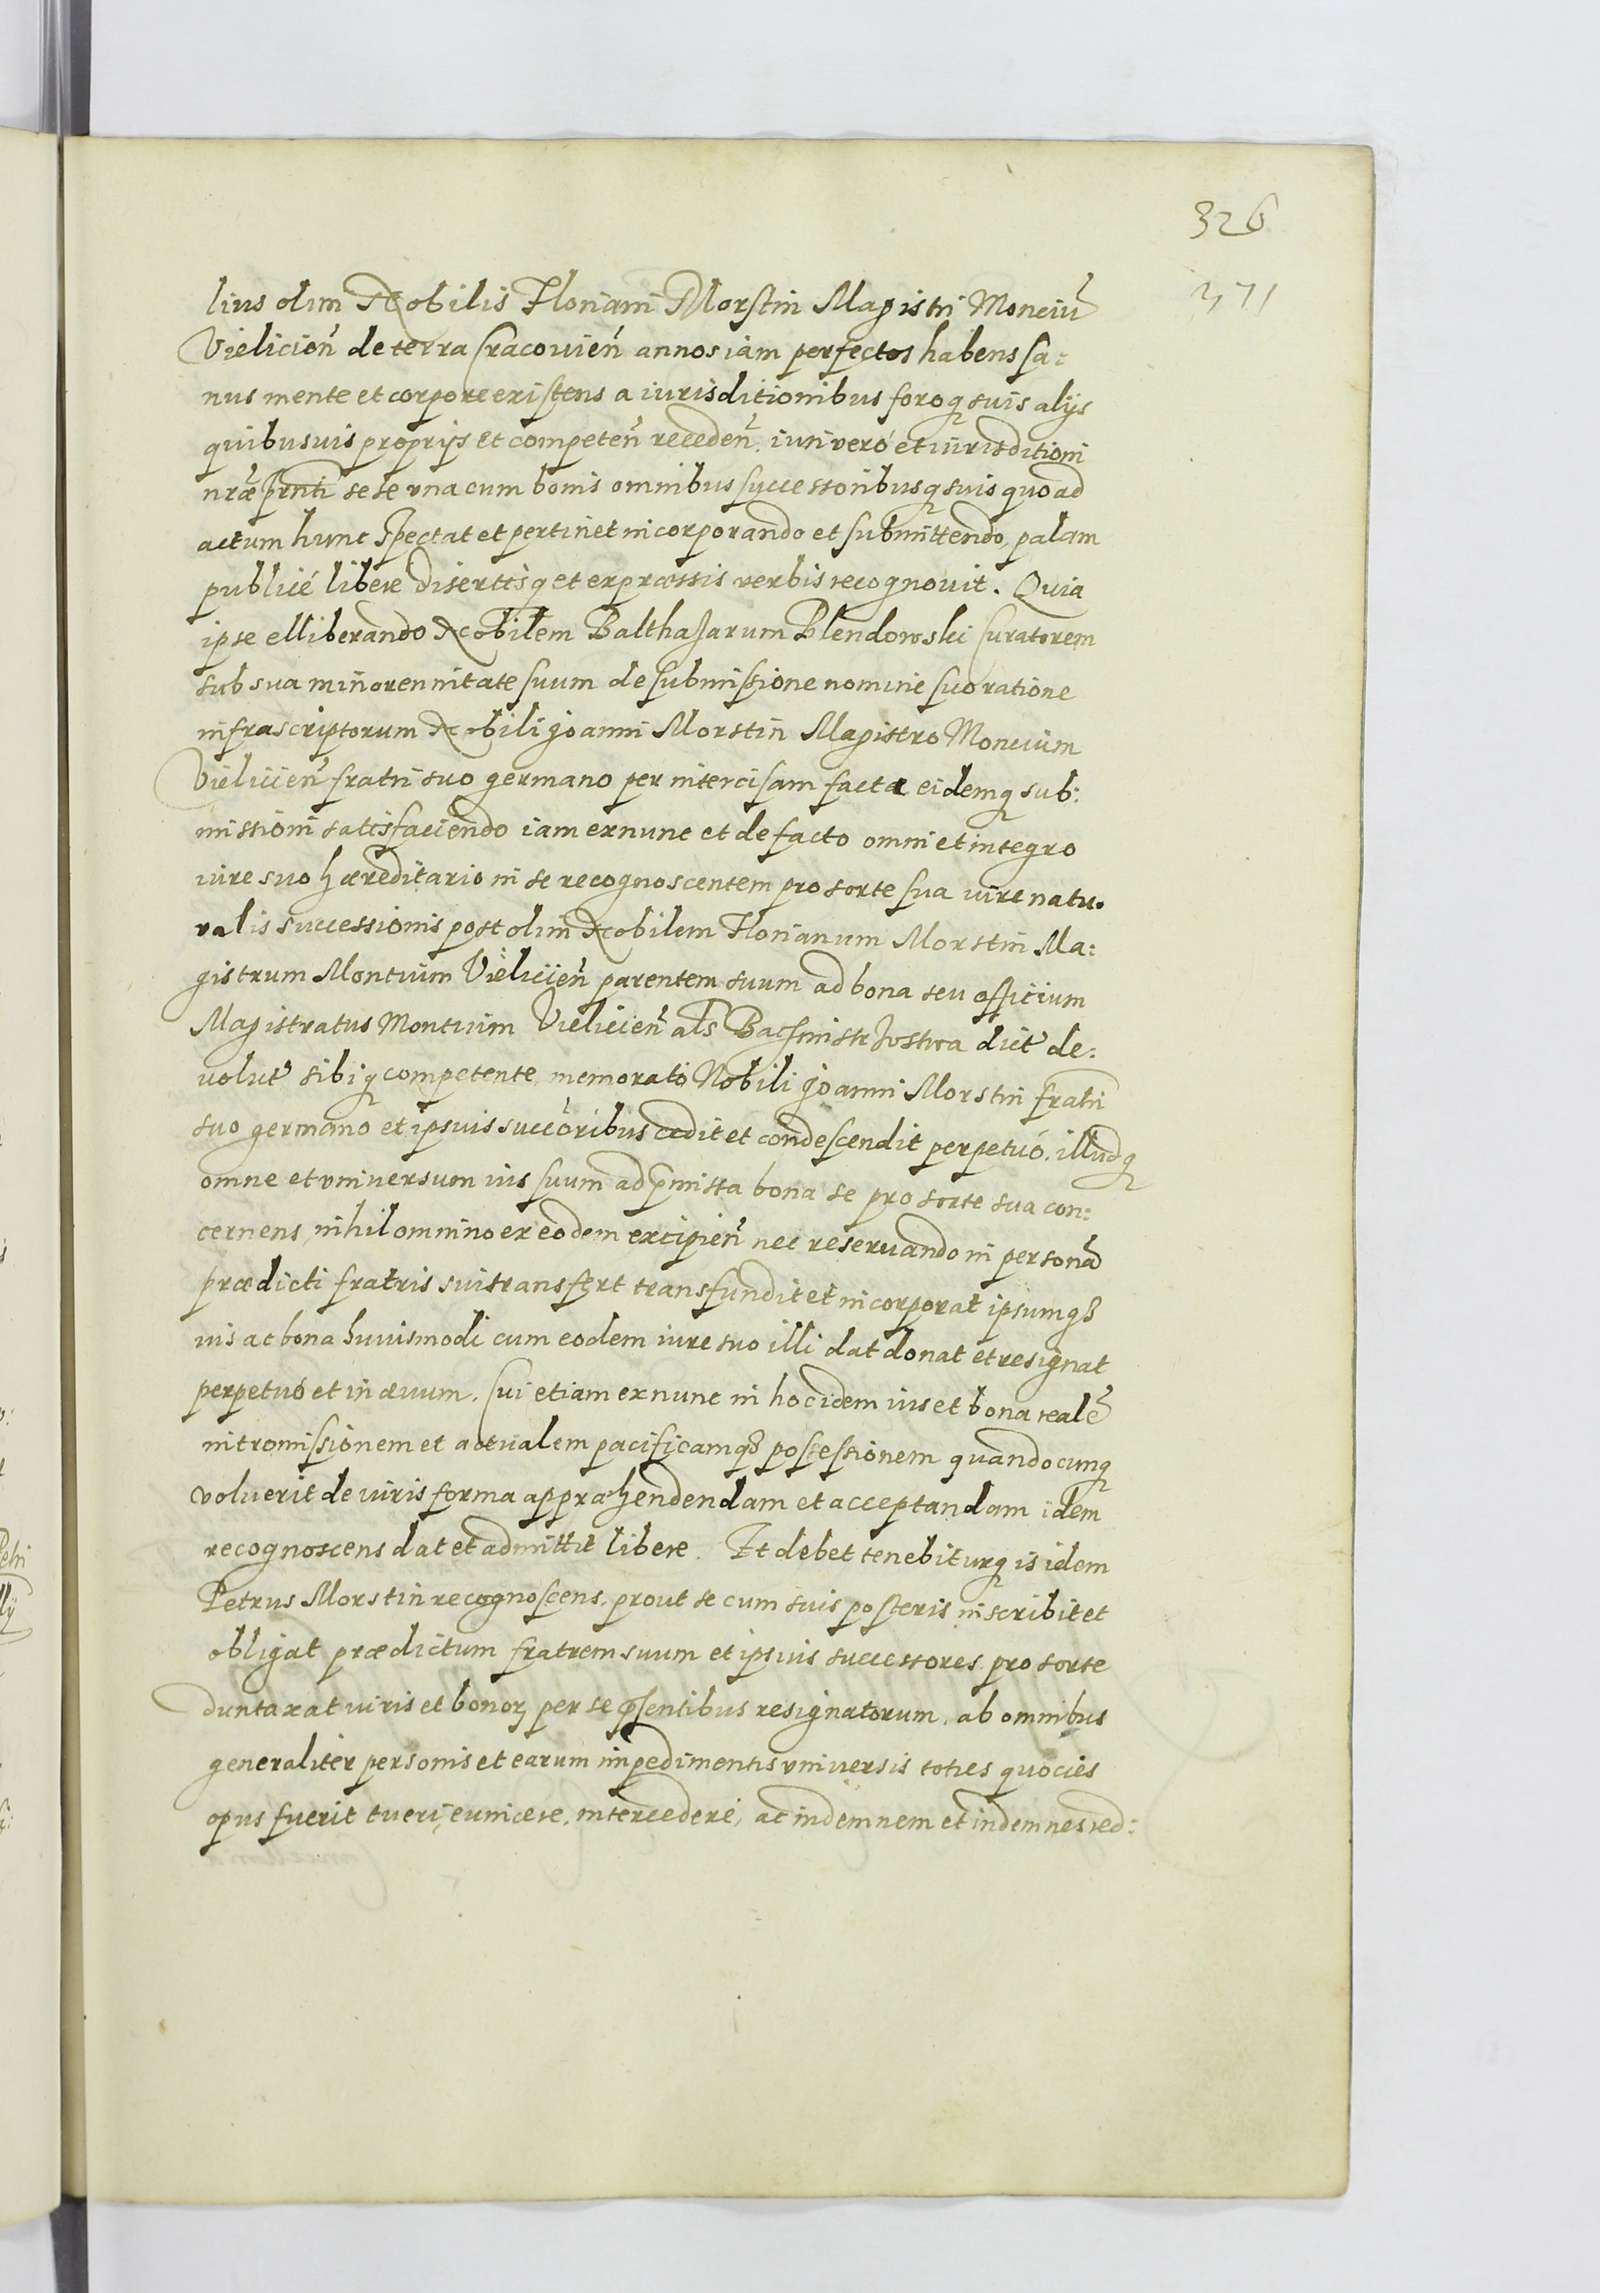 326
371
lius olim Nobilis Floriani Morstin Magistri Monciũ
Vielicien̄ de terra Cracouien̄ annos iam perfectos habens sa:
nus mente et corpore existens a iurisditionibus foroq suis alijs
quibusuis proprijs et competen̄ receden̄. iuri vero et iurisditioni
nr̃æ pr̃nti sese vna cum bonis omnibus successoribusq suis quoad
actum hunc spectat et pertinet incorporando et submittendo, palam
publicè libere disertisq et expræssis verbis recognouit. Quia
ipse elliberando Nobilem Balthasarum Blendowski Curatorem
sub sua minorennitate suum de submissione nomine suo ratione
infrascriptorum Nobili Joanni Morstin Magistro Moncium
Vielicien̄ fratri suo germano per intercisam facta eidemq sub:
missioni satisfaciendo iam ex nunc et de facto omni et integro
iure suo hæreditario in se recognoscentem pro sorte sua iure natu.
ralis successionis post olim Nobilem Florianum Morstin Ma:
gistrum Montium Vielicien̄ parentem suum ad bona seu officium
Magistratus Montium Vielicien̄ als Bachmistrzostwa dict̃ de:
volut̃ sibiq competente, memorato Nobili Joanni Morstin fratri
suo germano et ipsuis succõribus cedit et condescendit perpetuò, illudq
omne et vniversum ius suum ad p̃missa bona se pro sorte sua con:
cernens, nihil omnino ex eodem excipien̄ nec reseruando in personã
prædicti fratris sui transfert transfundit et incorporat ipsumqȝ
ius ac bona huiusmodi cum eodem iure suo illi dat donat et resignat
perpetuò et in æuum. Cui etiam ex nunc in hoc idem ius et bona realẽ
intromissionem et actualem pacificamqȝ possessionem quandocunq
voluerit de iuris forma appræhendendam et acceptandam idem
recognoscens dat et admittit libere. Et debet tenebiturq is idem
Petrus Morstin recognoscens, prout se cum suis posteris inscribit et
obligat prædictum fratrem suum et ipsius successores pro sorte
duntaxat iuris et bonoꝝ per se p̃sentibus resignatorum, ab omnibus
generaliter personis et earum impedimentis vniuersis toties quocies
opus fuerit tueri, euincere, intercedere, ac indemnem et indemnes red: